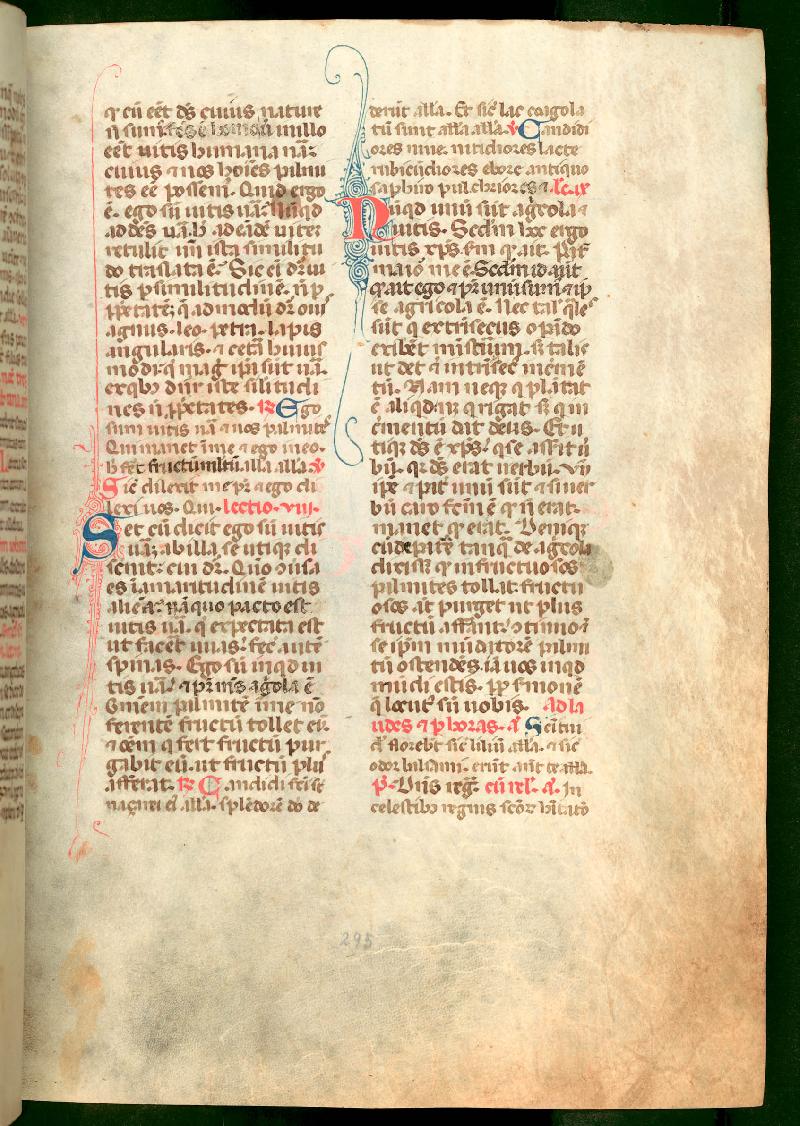 q̄ cū eēt dš cuius nature
nō sumus homines nullo
eēt uitis humana nā:
cuius ⁊ nos hoīes palmi
tes eē possem̄. Quid ergo
ē. ego sū uitis uā: nūqd
ad dēs uā. ad eādē uitē
retulit nū ista similitu
do trāslata ē. Sic ei dr̄ ui
tis p similitudinē. nō p
p̄petatē: q̄admodū dr̄ ouis
agnus. leo. petra. lapis
angularis. ⁊ cetā huius
modi: q̄ maḡ ip̄i sūt uā.
ex qb̄ dūr iste silitudi
nes nō p̄p̄etates. ℟ Ego
sum uitis uā ⁊ uos palmite
Qui manet ī me ⁊ ego ī eo.
h̄ fert fructū multū alla alla. ℣
Sic dilexit me pr̄ ⁊ ego di
lexi uos. Qui. lectio. viii.
Set cū dicit ego sū uitis
uā: ab illa se utiq; di
scernit: cui dr̄. Quō ūsa
es ī amaritudinē uitis
aliēa: nā quo pacto est
uitis uā. q̄ expectata est
ut facēt uuas: fec̄ autē
spinas. Ego sū inqd ui
tis uā: ⁊ pr̄ m̄s ag̃cola ē
Omem palmitē ī me nō
ferentē fructū tollet eū.
⁊ oēm q̄ fert fructū pur
gabit eū. ut fructū plus
afferat. ℟ Candidi fcī st̄
naȝarei ei alla. splēdorē dō de
derūt alla. Et sic̄ lac coagola
tū sunt alla alla. ℣ Candidi
ores niue. nitidiores lacte
rubicūdiores ebore antiquo
saphiro pulchriores ⁊ lc̄. ix
Nūqd unū sūt agcola ⁊
uitis. Scdm hoc ergo
uitis xp̄s. ēm q̄ ait. Pat̄
maior me ē. Scdm id aūt
q̄ ait ego ⁊ pr̄ unū sum̄ ⁊ ip̄
se agricola ē. Nec tal̄ q̄les
sūt q̄ extrīsecus opādo
exibēt mīstīum. s; talis
ut det ⁊ intrīsec̄ incrīmē
tū. Nam neq; q̄ plātat
ē aliqd. neq; q̄ rigat s; q̄ in
cmentū dat deus. Et u
tiq; dš ē xp̄s: q̄ se assit ū
bū. q̄ dš erat uerbū. Vn̄
ip̄e ⁊ pat̄ unū sūt ⁊ si uer
bū caro fcm̄ ē q̄ nō erat.
manet q̄ erat. Deniq;
cū de patre tanq̄ de ag̃cola
dicis; q̄ infructuosos
palmites tollat. fructu
osos aūt purget ut plus
fructū afferant: cōtinuo ⁊
se ip̄m mūdatorē palmi
tū ostendēs. iā uos inqd
mūdi estis. pp̄ ẜmonē
q̄ locut̄ sū uobis. Ad la
udes ⁊ p horas. a͞ Scī tui
dn̄e florebt̄ sic̄ liliū alla. ⁊ sic̄
odor balsami. erūt ante te alla.
P͞s. Dn̄s reg̃. cū rel̄. a͞. In
celestib; regnis scōꝝ hītatō
295